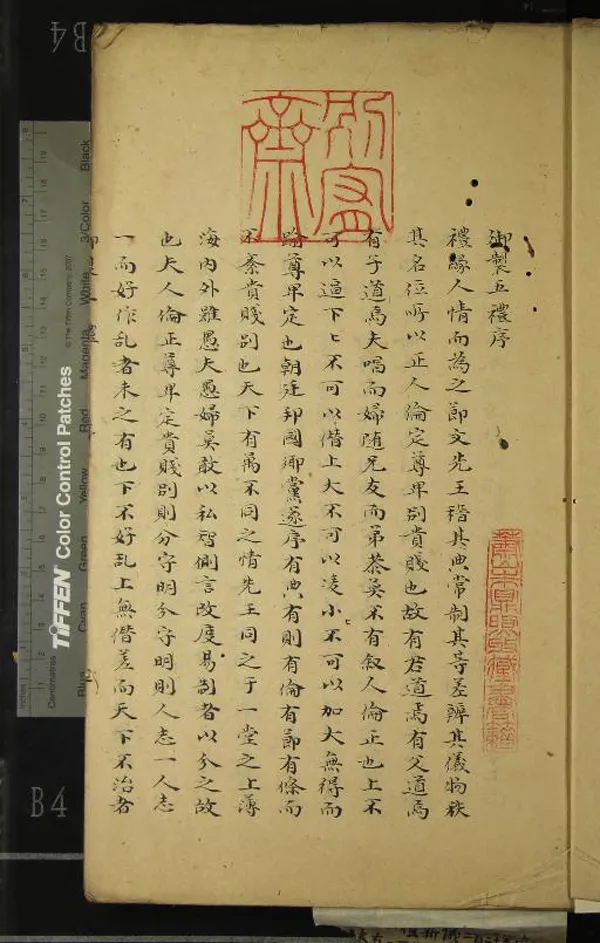 御製五禮序
禮緣人情而為之節文先王稽其典常制其等差辨其儀物秩
其名位所以正人倫定尊卑別貴賤也故有君道焉有父道焉
有子道焉夫唱而婦随兄友而弟恭莫不有叙人倫正也上不
可以逼下〻不可以僭上大不可以凌小〻不可以加大無得而
踰尊卑定也朝廷邦國鄉黨遂序有典有則有倫有節有條而
不紊貴賤別也天下有萬不同之情先王同之于一堂之上薄
海内外雖愚夫愚婦莫敢以私智側言改度易制者以分之故
也夫人倫正尊卑定貴賤別則分守明分守明則人志一人志
一而好作乱者未之有也下不好乱上無僭差而天下不治者
蕭山朱鼎煦收藏書籍
別宥齋
TIFFEN Color Control Patches
© The Tiffen Company, 2007
Blue Cyan Green Yellow Red Magenta White 3/Color Black
Inches
Centimetres
B4
B4